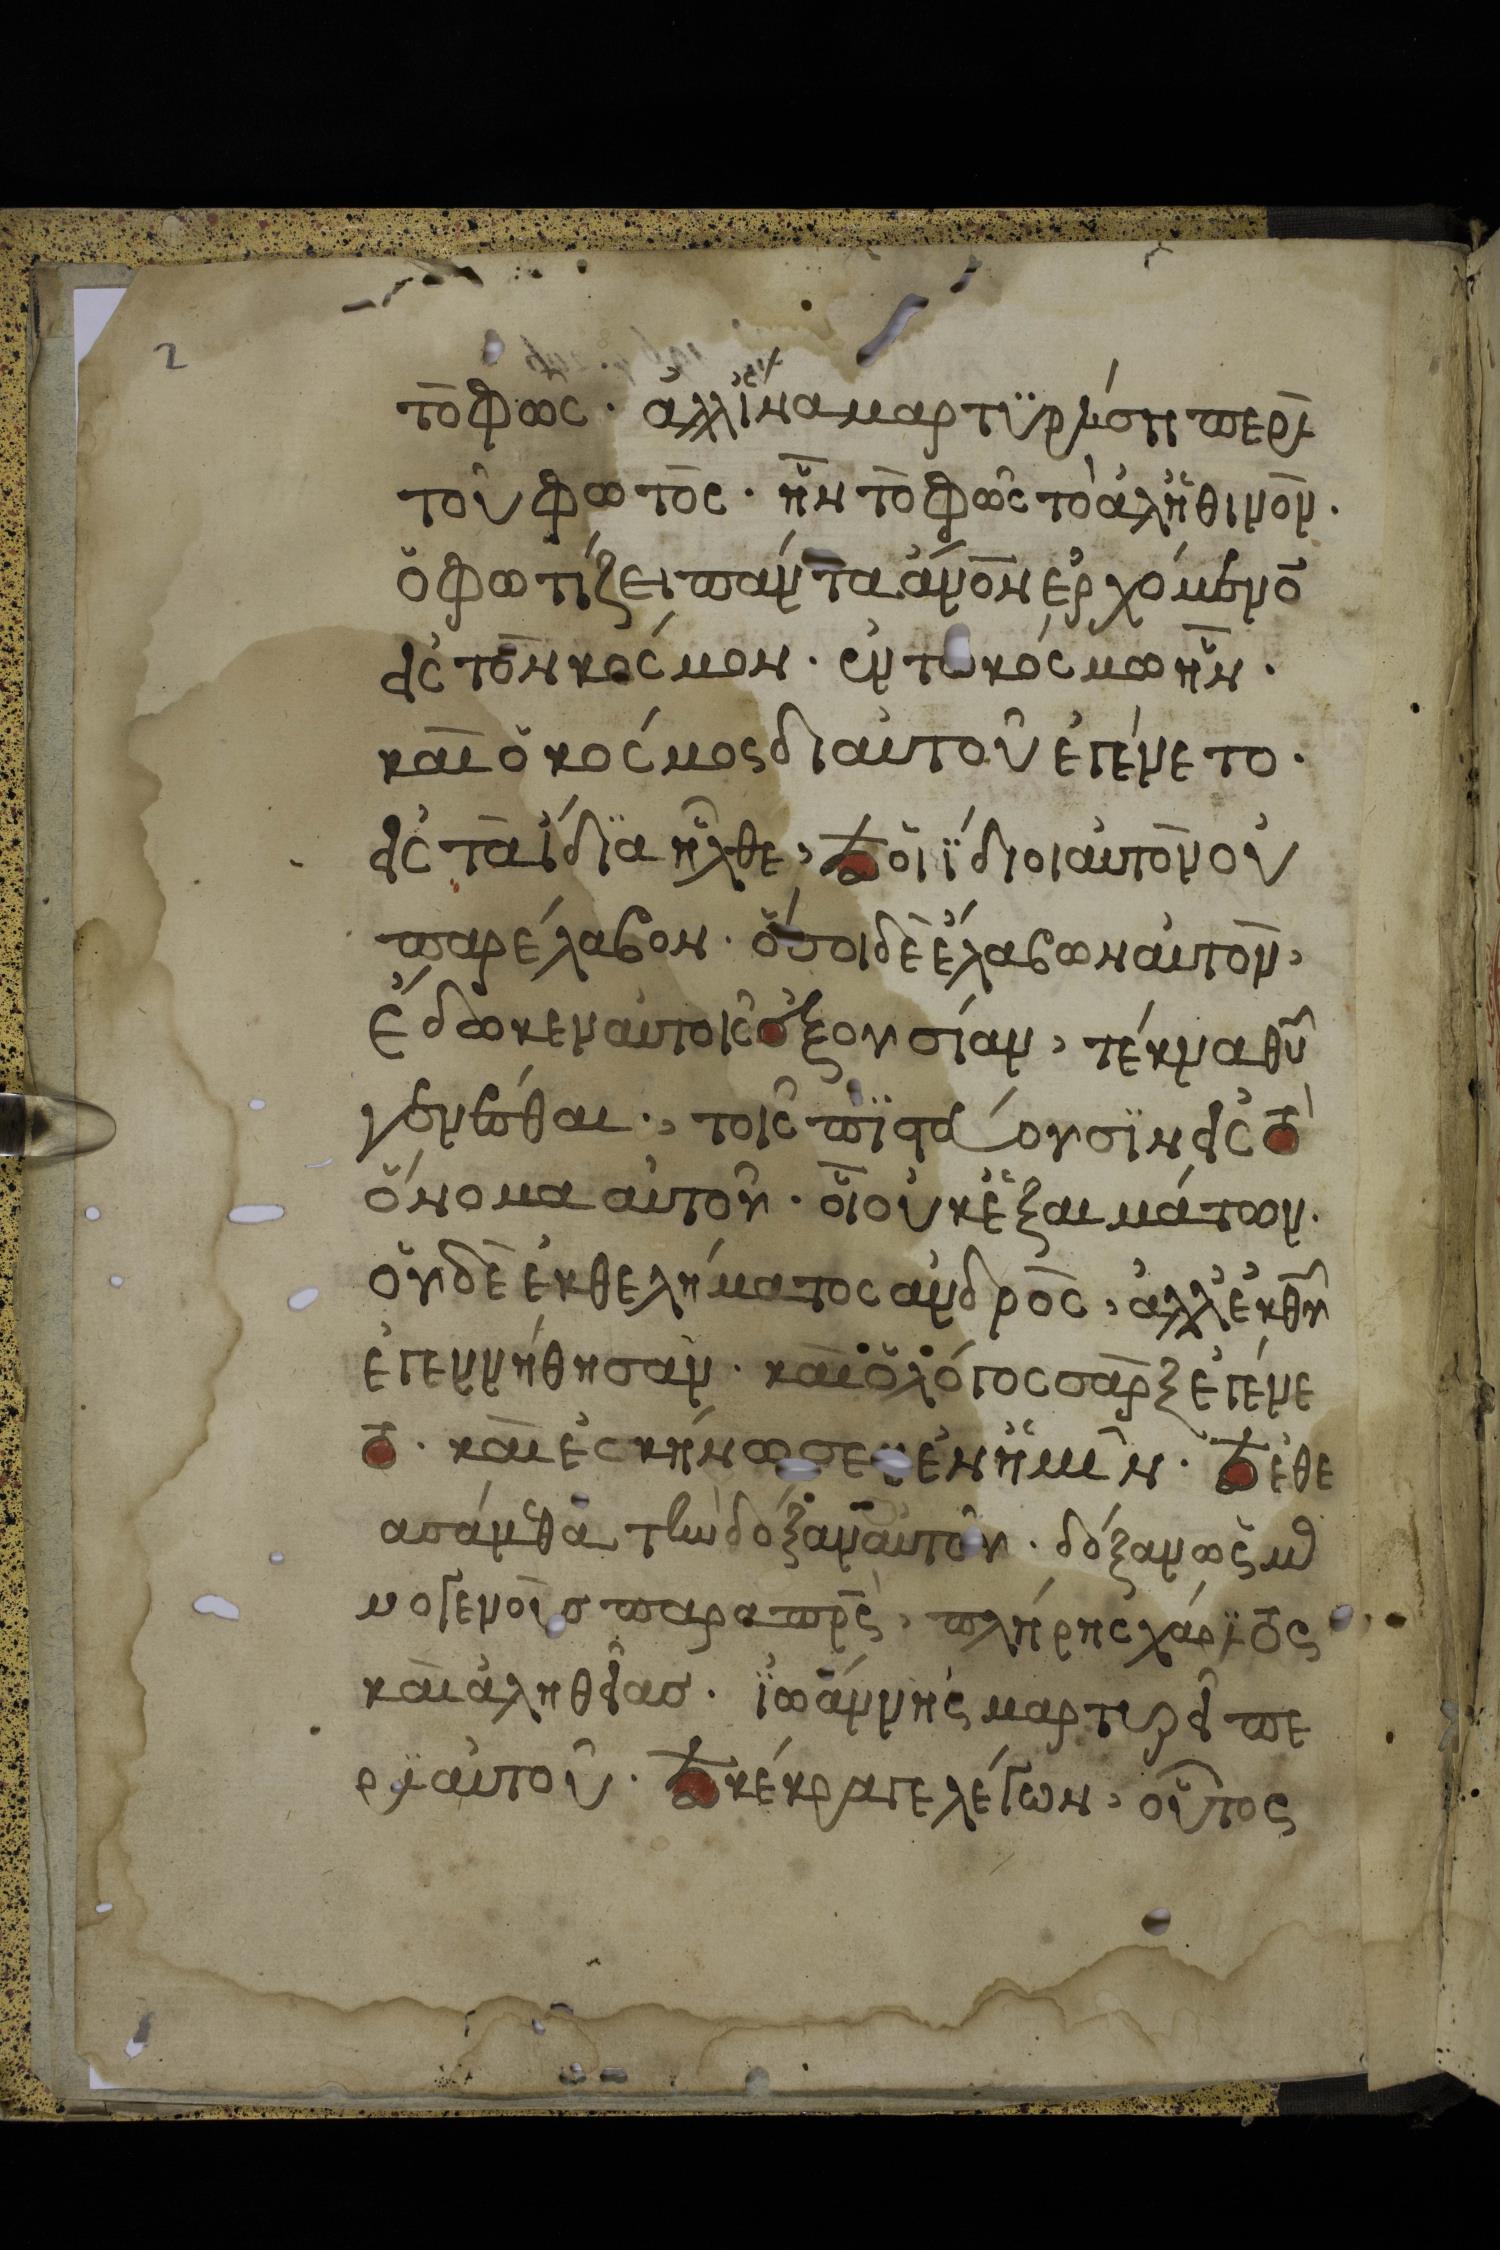 2
τὸ φῶς · ἀλλ ἵνα μαρτϋρήση περὶ
τοῦ φωτὸς · ἦν τὸ φῶς τὸ ἀληθινὸν ·
ὃ φωτίζει πάντα ἀνον ἐρχόμενο
εἰς τὸν κόσμον · ἐν τω κόσμω ἦν ·
καὶ ὁ κόσμος δι αυτοῦ ἐγένετο ·
εἰς τὰ ἰδϊα ἦλθε, καὶ οἱ ἴδιοι αὐτὸν οὐ
παρέλαβον · ὅσοι δὲ ἔλαβων αὐτὸν,
ἔδωκεν αὐτοῖς ἐξουσίαν, τέκνα θῦ
γενέσθαι · , τοῖς πϊστεύουσϊν εἰς τὸ
ὄνομα αὐτοῦ · οἳ οὐκ ἐξ αιμάτων ·
οὐδὲ ἐκ θελήματος ανδρὸς, ἀλλ ἐκ θῦ
ἐγεννήθησαν · καὶ ὁ λόγος σὰρξ ἐγένε
το · καὶ ἐσκήνωσεν ἐν ἡμῖν · καὶ ἐθε
ασάμεθα τὴν δόξαν αὐτοῦ · δόξαν ὡς μο
νογενοῦσ παρα πρς, πλήρης χάρϊτος
καὶ ἀληθείασ · ϊωάννης μαρτυρεῖ πε
ρϊ αὐτοῦ · καὶ κέκραγε λέγων, οὗτος